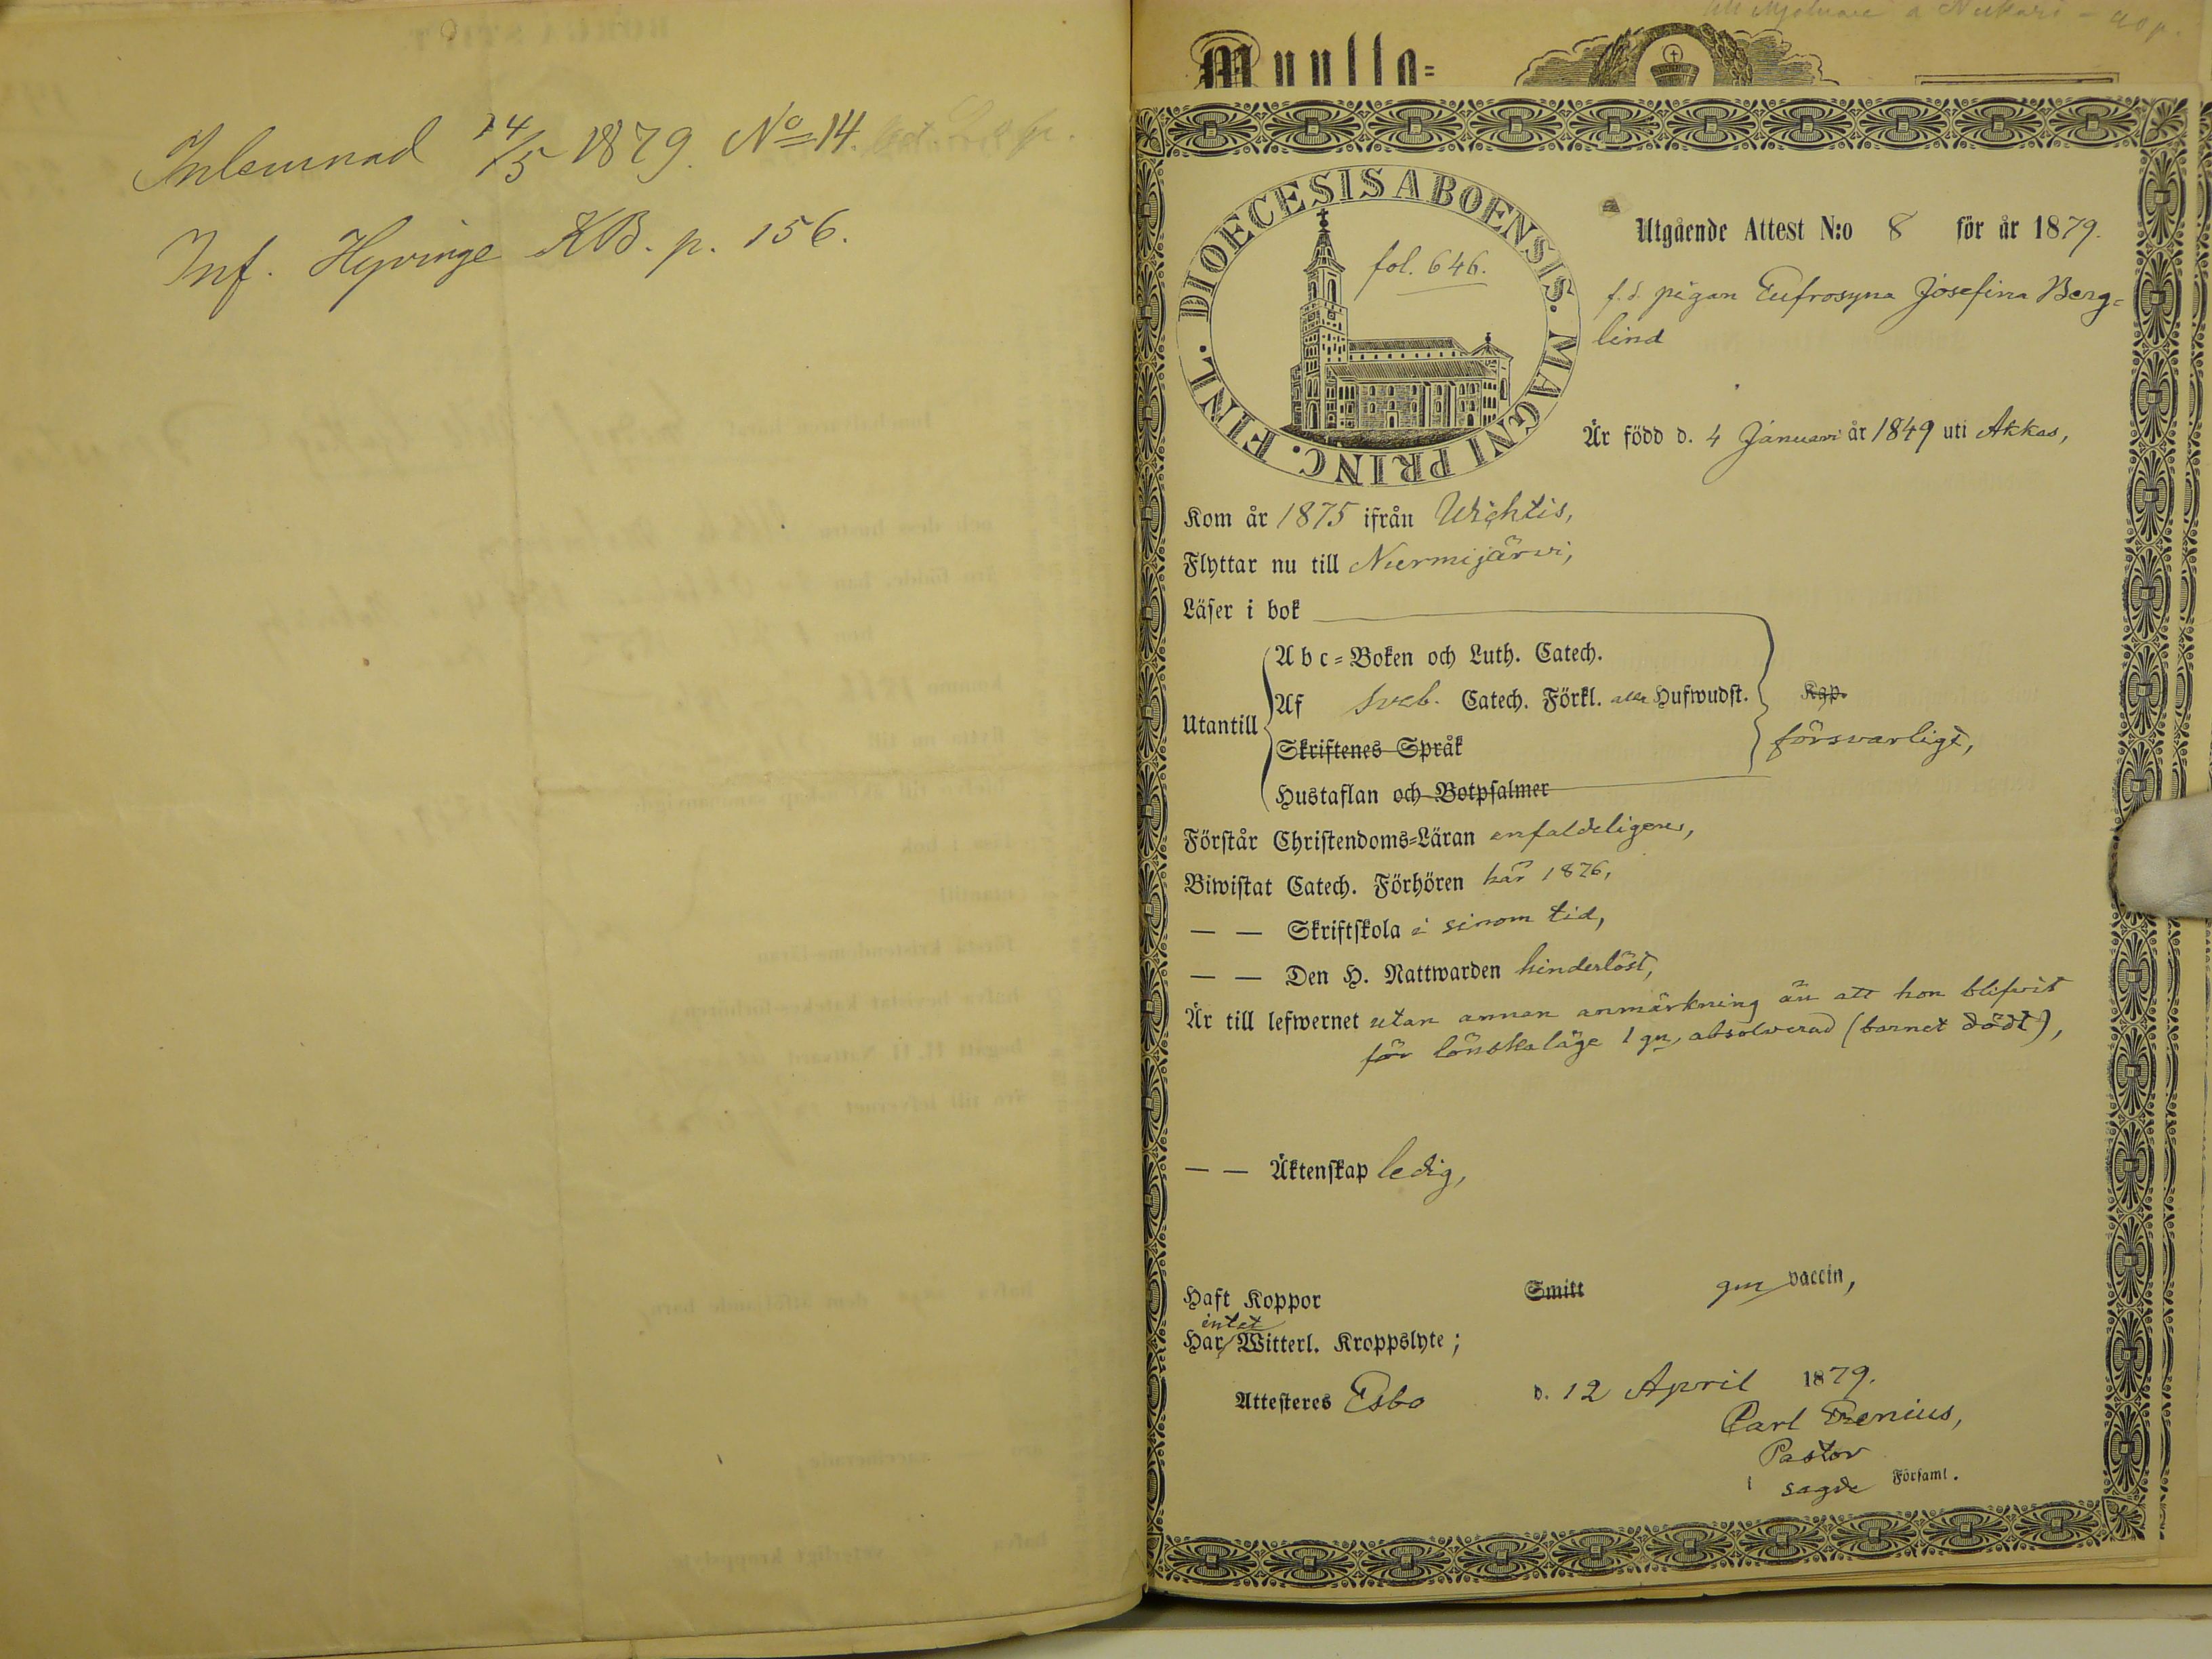 Inlemnad 24/5 1879. No 14.
Inf. Hyvinge KB. p. 156.
Muulla=
DIOECESIS ABOENSIS. MAGNI PRINC. FINL.
fol. 646.
Utgående Attest N:o 8 för år 1879.
f.d. pigan Eufrosyna Josefina Berg=
lind
Är född d. 4 Januari år 1849 uti Akkas,
Kom år 1875 ifrån Wichtis,
Flyttar nu till Nurmijärvi,
Läser i bok
Utantill
Abc=Boken och Luth. Catech.
Af Sveb. Catech. Förkl. alla Hufwudst.
Kap.
Skriftenes Språk
försvarligt,
Hustaflan och Botpsalmer
Förstår Christendoms=Läran enfaldeligen,
Biwistat Catech. Förhören här 1876,
— — Skriftskola i sinom tid,
— — Den H. Nattwarden hinderlöst,
Är till lefwernet utan annan anmärkning än att hon blifvit
för lönskaläge 1 gn, absolverad (barnet dödt),
— — Äktenskap ledig,
Haft Koppor Smitt gm vaccin,
intet
Har Witterl. Kroppslyte;
Attesteres Esbo d. 12 April 1879.
Carl Frenius,
Pastor
i sagde Församl.